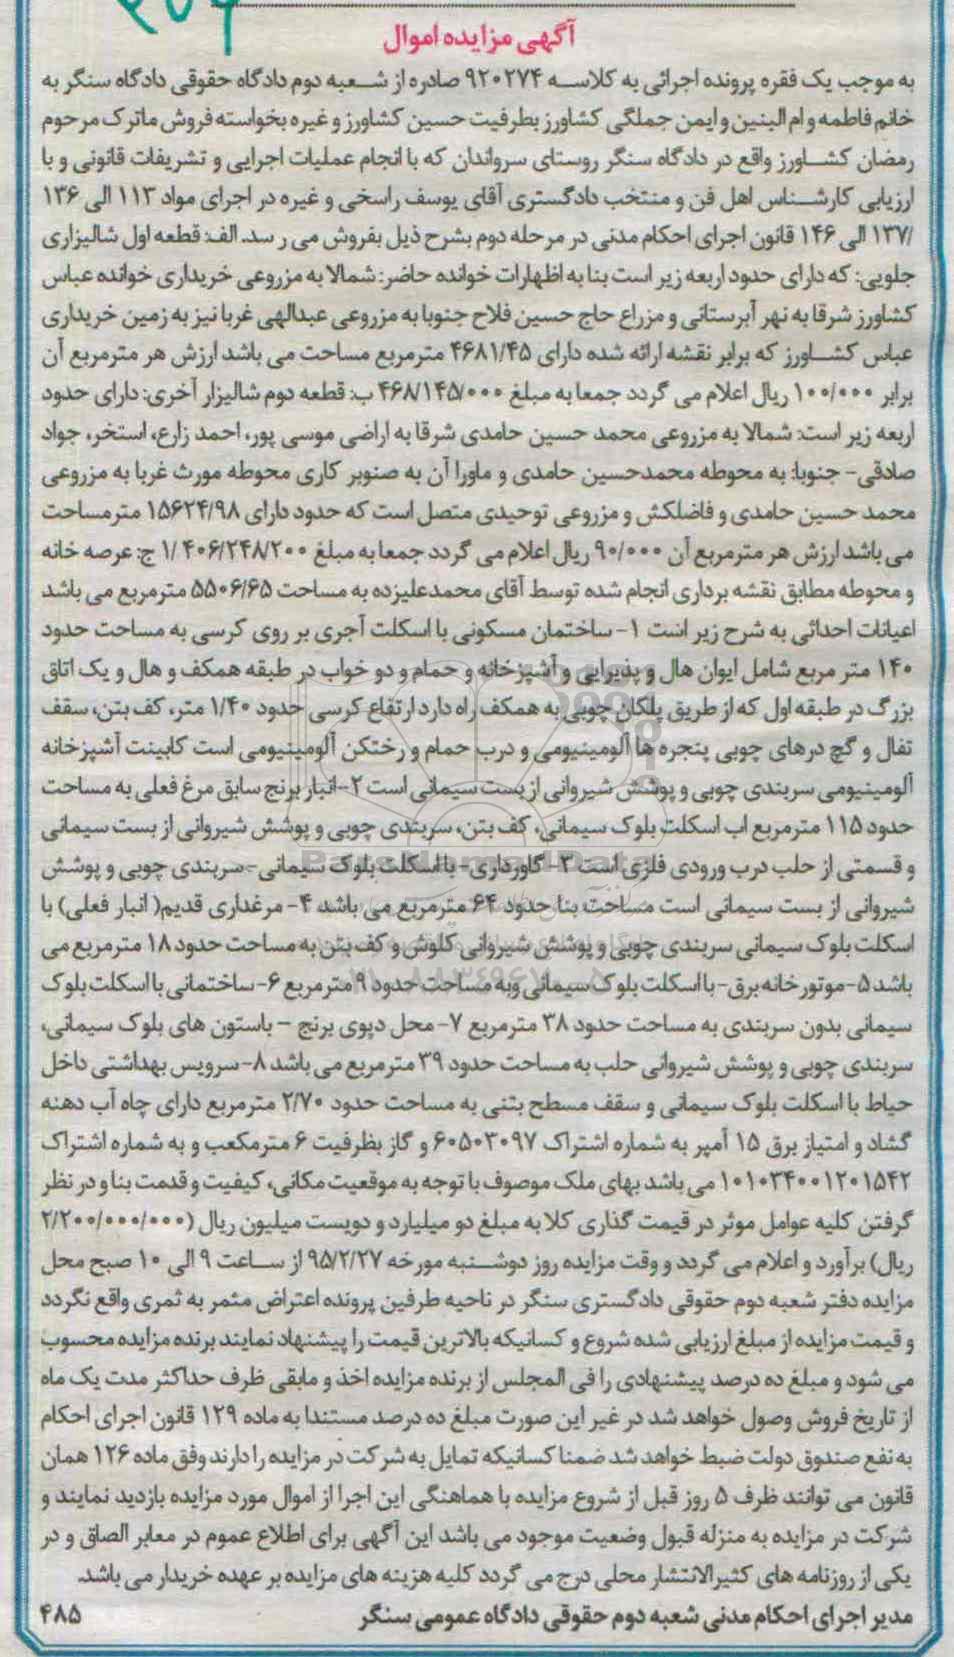 آگهی مزایده اموال
به موجب یک فقره پرونده اجرائی به کلاسه ۹۲۰۲۷۴ صادره از شعبه دوم دادگاه حقوقی دادگاه سنگر به
خانم فاطمه و ام البنین و ایمن جملگی کشاورز بطرفیت حسین کشاورز و غیره بخواسته فروش ماترک مرحوم
رمضان کشاورز واقع در دادگاه سنگر روستای سرواندان که با انجام عملیات اجرایی و تشریفات قانونی و با
ارزیابی کارشناس اهل فن و منتخب دادگستری آقای یوسف راسخی و غیره در اجرای مواد ۱۱۳ الی ۱۳۶
/۱۳۷ الی ۱۴۶ قانون اجرای احکام مدنی در مرحله دوم بشرح ذیل بفروش می ر سد. الف: قطعه اول شالیزاری
جلویی: که دارای حدود اربعه زیر است بنا به اظهارات خوانده حاضر: شمالا به مزروعی خریداری خوانده عباس
کشاورز شرقا به نهر آبرستانی و مزراع حاج حسین فلاح جنوبا به مزروعی عبدالهی غربا نیز به زمین خریداری
عباس کشاورز که برابر نقشه ارائه شده دارای ۴۶۸۱/۴۵ مترمربع مساحت می باشد ارزش هر مترمربع آن
برابر ۱۰۰/۰۰۰ ریال اعلام می گردد جمعا به مبلغ ۴۶۸/۱۴۵/۰۰۰ ب: قطعه دوم شالیزار آخری: دارای حدود
اربعه زیر است: شمالا به مزروعی محمد حسین حامدی شرقا به اراضی موسی پور، احمد زارع، استخر، جواد
صادقی- جنوبا: به محوطه محمدحسین حامدی و ماورا آن به صنوبر کاری محوطه مورث غربا به مزروعی
محمد حسین حامدی و فاضلکش و مزروعی توحیدی متصل است که حدود دارای ۱۵۶۲۴/۹۸ مترمساحت
می باشد ارزش هر مترمربع آن ۹۰/۰۰۰ ریال اعلام می گردد جمعا به مبلغ ۱/۴۰۶/۲۴۸/۲۰۰ ج: عرصه خانه
و محوطه مطابق نقشه برداری انجام شده توسط آقای محمدعلیزده به مساحت ۵۵۰۶/۶۵ مترمربع می باشد
اعیانات احداثی به شرح زیر است ۱- ساختمان مسکونی با اسکلت آجری بر روی کرسی به مساحت حدود
۱۴۰ متر مربع شامل ایوان هال و پذیرایی و آشپزخانه و حمام و دو خواب در طبقه همکف و هال و یک اتاق
بزرگ در طبقه اول که از طریق پلکان چوبی به همکف راه دارد ارتفاع کرسی حدود ۱/۴۰ متر، کف بتن، سقف
تفال و گچ درهای چوبی پنجره ها آلومینیومی و درب حمام و رختکن آلومینیومی است کابینت آشپزخانه
آلومینیومی سربندی چوبی و پوشش شیروانی از بست سیمانی است ۲- انبار برنج سابق مرغ فعلی به مساحت
حدود ۱۱۵ مترمربع اب اسکلت بلوک سیمانی، کف بتن، سربندی چوبی و پوشش شیروانی از بست سیمانی
و قسمتی از حلب درب ورودی فلزی است ۳- گاورداری- با اسکلت بلوک سیمانی- سربندی چوبی و پوشش
شیروانی از بست سیمانی است مساحت بنا حدود ۶۴ مترمربع می باشد ۴- مرغداری قدیم( انبار فعلی) با
اسکلت بلوک سیمانی سربندی چوبی و پوشش شیروانی کلوش و کف بتن به مساحت حدود ۱۸ مترمربع می
باشد ۵- موتورخانه برق- با اسکلت بلوک سیمانی وبه مساحت حدود ۹ مترمربع ۶- ساختمانی با اسکلت بلوک
سیمانی بدون سربندی به مساحت حدود ۳۸ مترمربع ۷- محل دپوی برنج - باستون های بلوک سیمانی،
سربندی چوبی و پوشش شیروانی حلب به مساحت حدود ۳۹ مترمربع می باشد ۸- سرویس بهداشتی داخل
حیاط با اسکلت بلوک سیمانی و سقف مسطح بتنی به مساحت حدود ۲/۷۰ مترمربع دارای چاه آب دهنه
گشاد و امتیاز برق ۱۵ آمپر به شماره اشتراک ۶۰۵۰۳۰۹۷ و گاز بظرفیت ۶ مترمکعب و به شماره اشتراک
۱۰۱۰۳۴۰۰۱۲۰۱۵۴۲ می باشد بهای ملک موصوف با توجه به موقعیت مکانی، کیفیت و قدمت بنا و در نظر
گرفتن کلیه عوامل موثر در قیمت گذاری کلا به مبلغ دو میلیارد و دویست میلیون ریال (۲/۲۰۰/۰۰۰/۰۰۰
ریال) برآورد و اعلام می گردد و وقت مزایده روز دوشنبه مورخه ۹۵/۲/۲۷ از ساعت ۹ الی ۱۰ صبح محل
مزایده دفتر شعبه دوم حقوقی دادگستری سنگر در ناحیه طرفین پرونده اعتراض مثمر به ثمری واقع نگردد
و قیمت مزایده از مبلغ ارزیابی شده شروع و کسانیکه بالاترین قیمت را پیشنهاد نمایند برنده مزایده محسوب
می شود و مبلغ ده درصد پیشنهادی را فی المجلس از برنده مزایده اخذ و مابقی ظرف حداکثر مدت یک ماه
از تاریخ فروش وصول خواهد شد در غیر این صورت مبلغ ده درصد مستندا به ماده ۱۲۹ قانون اجرای احکام
به نفع صندوق دولت ضبط خواهد شد ضمنا کسانیکه تمایل به شرکت در مزایده را دارند وفق ماده ۱۲۶ همان
قانون می توانند ظرف ۵ روز قبل از شروع مزایده با هماهنگی این اجرا از اموال مورد مزایده بازدید نمایند و
شرکت در مزایده به منزله قبول وضعیت موجود می باشد این آگهی برای اطلاع عموم در معابر الصاق و در
یکی از روزنامه های کثیرالانتشار محلی درج می گردد کلیه هزینه های مزایده بر عهده خریدار می باشد.
مدیر اجرای احکام مدنی شعبه دوم حقوقی دادگاه عمومی سنگر
۴۸۵